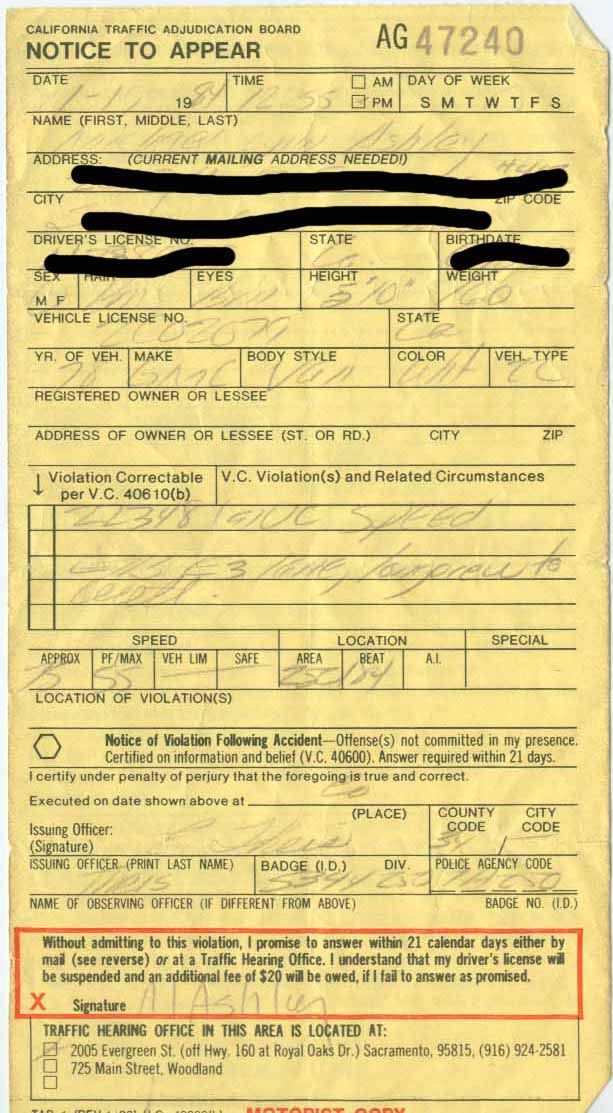 CALIFORNIA TRAFFIC ADJUDICATION BOARD
NOTICE TO APPEAR
AG 47240
DATE TIME AM DAY OF WEEK
1-1 1984 12 55 PM S M T W T F S
NAME (FIRST, MIDDLE, LAST)
Ashley
ADDRESS: (CURRENT MAILING ADDRESS NEEDED!)
CITY ZIP CODE
DRIVER'S LICENSE NO. STATE BIRTHDATE
Ca
SEX HAIR EYES HEIGHT WEIGHT
M F Brn Brn 5'10" 160
VEHICLE LICENSE NO. STATE
Ca
YR. OF VEH. MAKE BODY STYLE COLOR VEH. TYPE
GMC Van Wht
REGISTERED OWNER OR LESSEE
ADDRESS OF OWNER OR LESSEE (ST. OR RD.) CITY ZIP
↓ Violation Correctable per V.C. 40610(b) V.C. Violation(s) and Related Circumstances
22348 VC Speed
SPEED LOCATION SPECIAL
APPROX PF/MAX VEH LIM SAFE AREA BEAT A.I.
75 55 250 84
LOCATION OF VIOLATION(S)
Notice of Violation Following Accident—Offense(s) not committed in my presence.
Certified on information and belief (V.C. 40600). Answer required within 21 days.
I certify under penalty of perjury that the foregoing is true and correct.
Executed on date shown above at Ca
(PLACE) COUNTY CODE CITY CODE
Issuing Officer:
(Signature)
34
ISSUING OFFICER (PRINT LAST NAME) BADGE (I.D.) DIV. POLICE AGENCY CODE
NAME OF OBSERVING OFFICER (IF DIFFERENT FROM ABOVE) BADGE NO. (I.D.)
Without admitting to this violation, I promise to answer within 21 calendar days either by
mail (see reverse) or at a Traffic Hearing Office. I understand that my driver's license will
be suspended and an additional fee of $20 will be owed, if I fail to answer as promised.
X Signature Ashley
TRAFFIC HEARING OFFICE IN THIS AREA IS LOCATED AT:
2005 Evergreen St. (off Hwy. 160 at Royal Oaks Dr.) Sacramento, 95815, (916) 924-2581
725 Main Street, Woodland
MOTORIST COPY